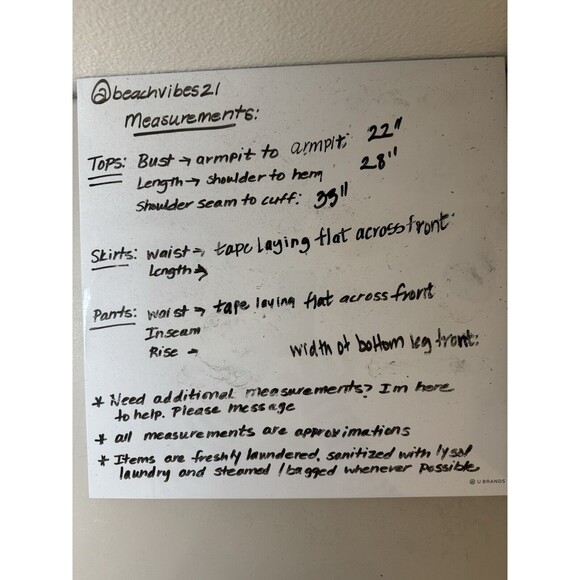 @beachvibes21
Measurements:
Tops: Bust → armpit to armpit: 22"
Length → shoulder to hem 28"
Shoulder seam to cuff: 33"
Skirts: Waist → tape laying flat across front:
Length →
Pants: Waist → tape laying flat across front
Inseam
Rise - width of bottom leg front:
* Need additional measurements? Im here
to help. Please message
* all measurements are approximations
* Items are freshly laundered, sanitized with lysol
laundry and steamed / bagged whenever possible
U BRANDS